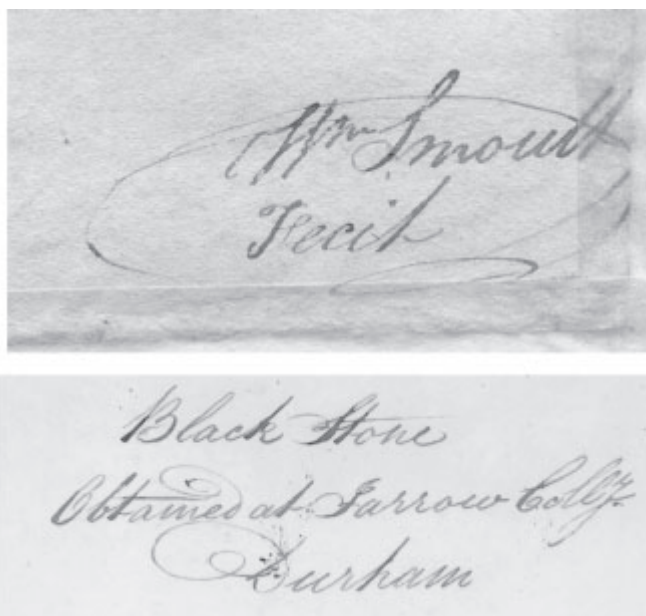 Wm Smoult
Fecit
Black Stone
Obtained at Jarrow Colly.
Durham